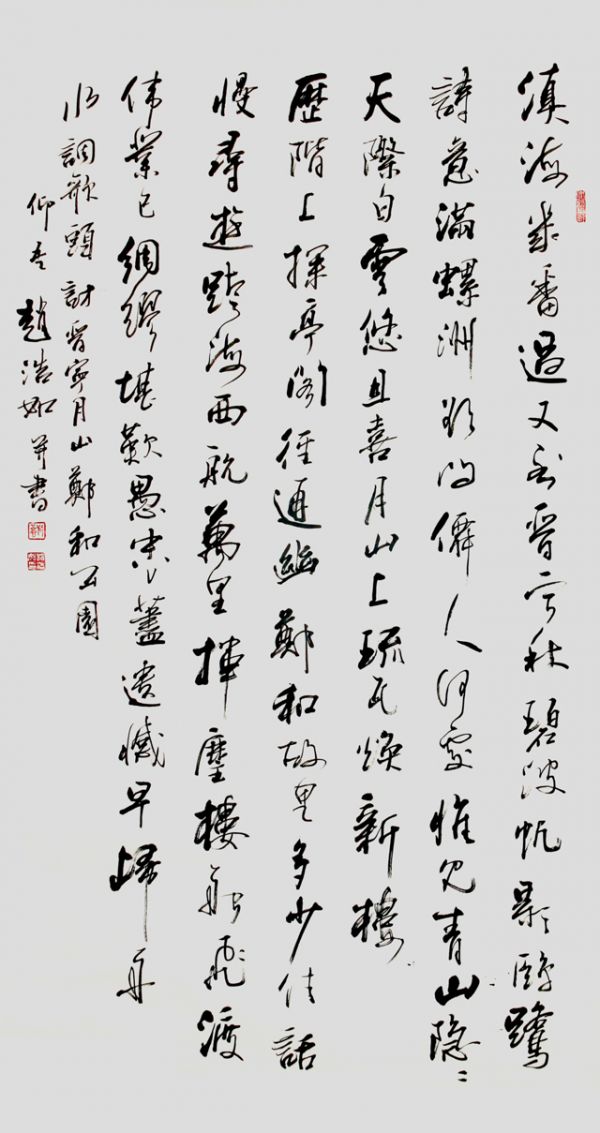 滇海幾番過又到晉宁秋碧波帆影鷗鷺
詩意滿螺洲欲問僊人何處惟見青山隱〻
天際白雲悠且喜月山上琉瓦煥新樓
歷階上探亭閣徑通幽鄭和故里多少佳話
慢尋遊跨海西航萬里揮麾樓船飛渡
伟業已綢繆堪歎愚忠藎遺憾早歸舟
水調歌頭 訪晉寧月山鄭和公園
趙浩如并書